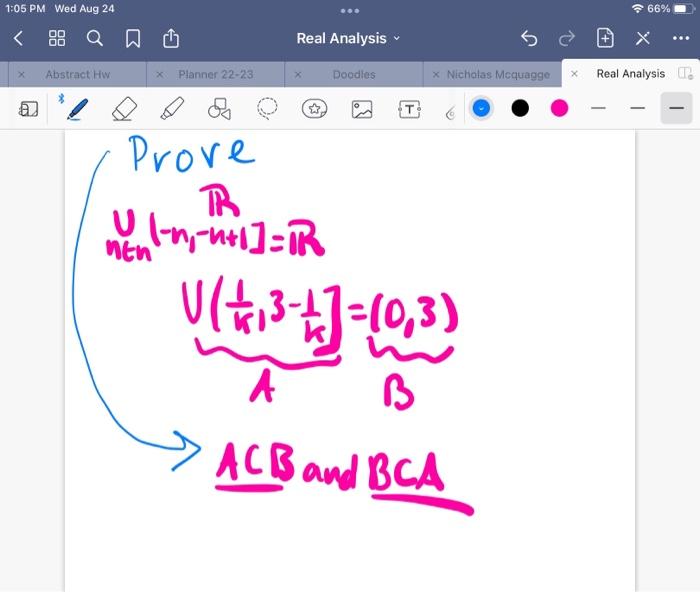 1:05 PM Wed Aug 24
66%
Real Analysis
Abstract Hw
Planner 22-23
Doodles
Nicholas Mcquagge
Real Analysis
Prove
ℝ
∪ [-n,-n+1]=ℝ
n∈n
∪(1/k,3-1/k]=(0,3)
A B
A⊂B and B⊂A